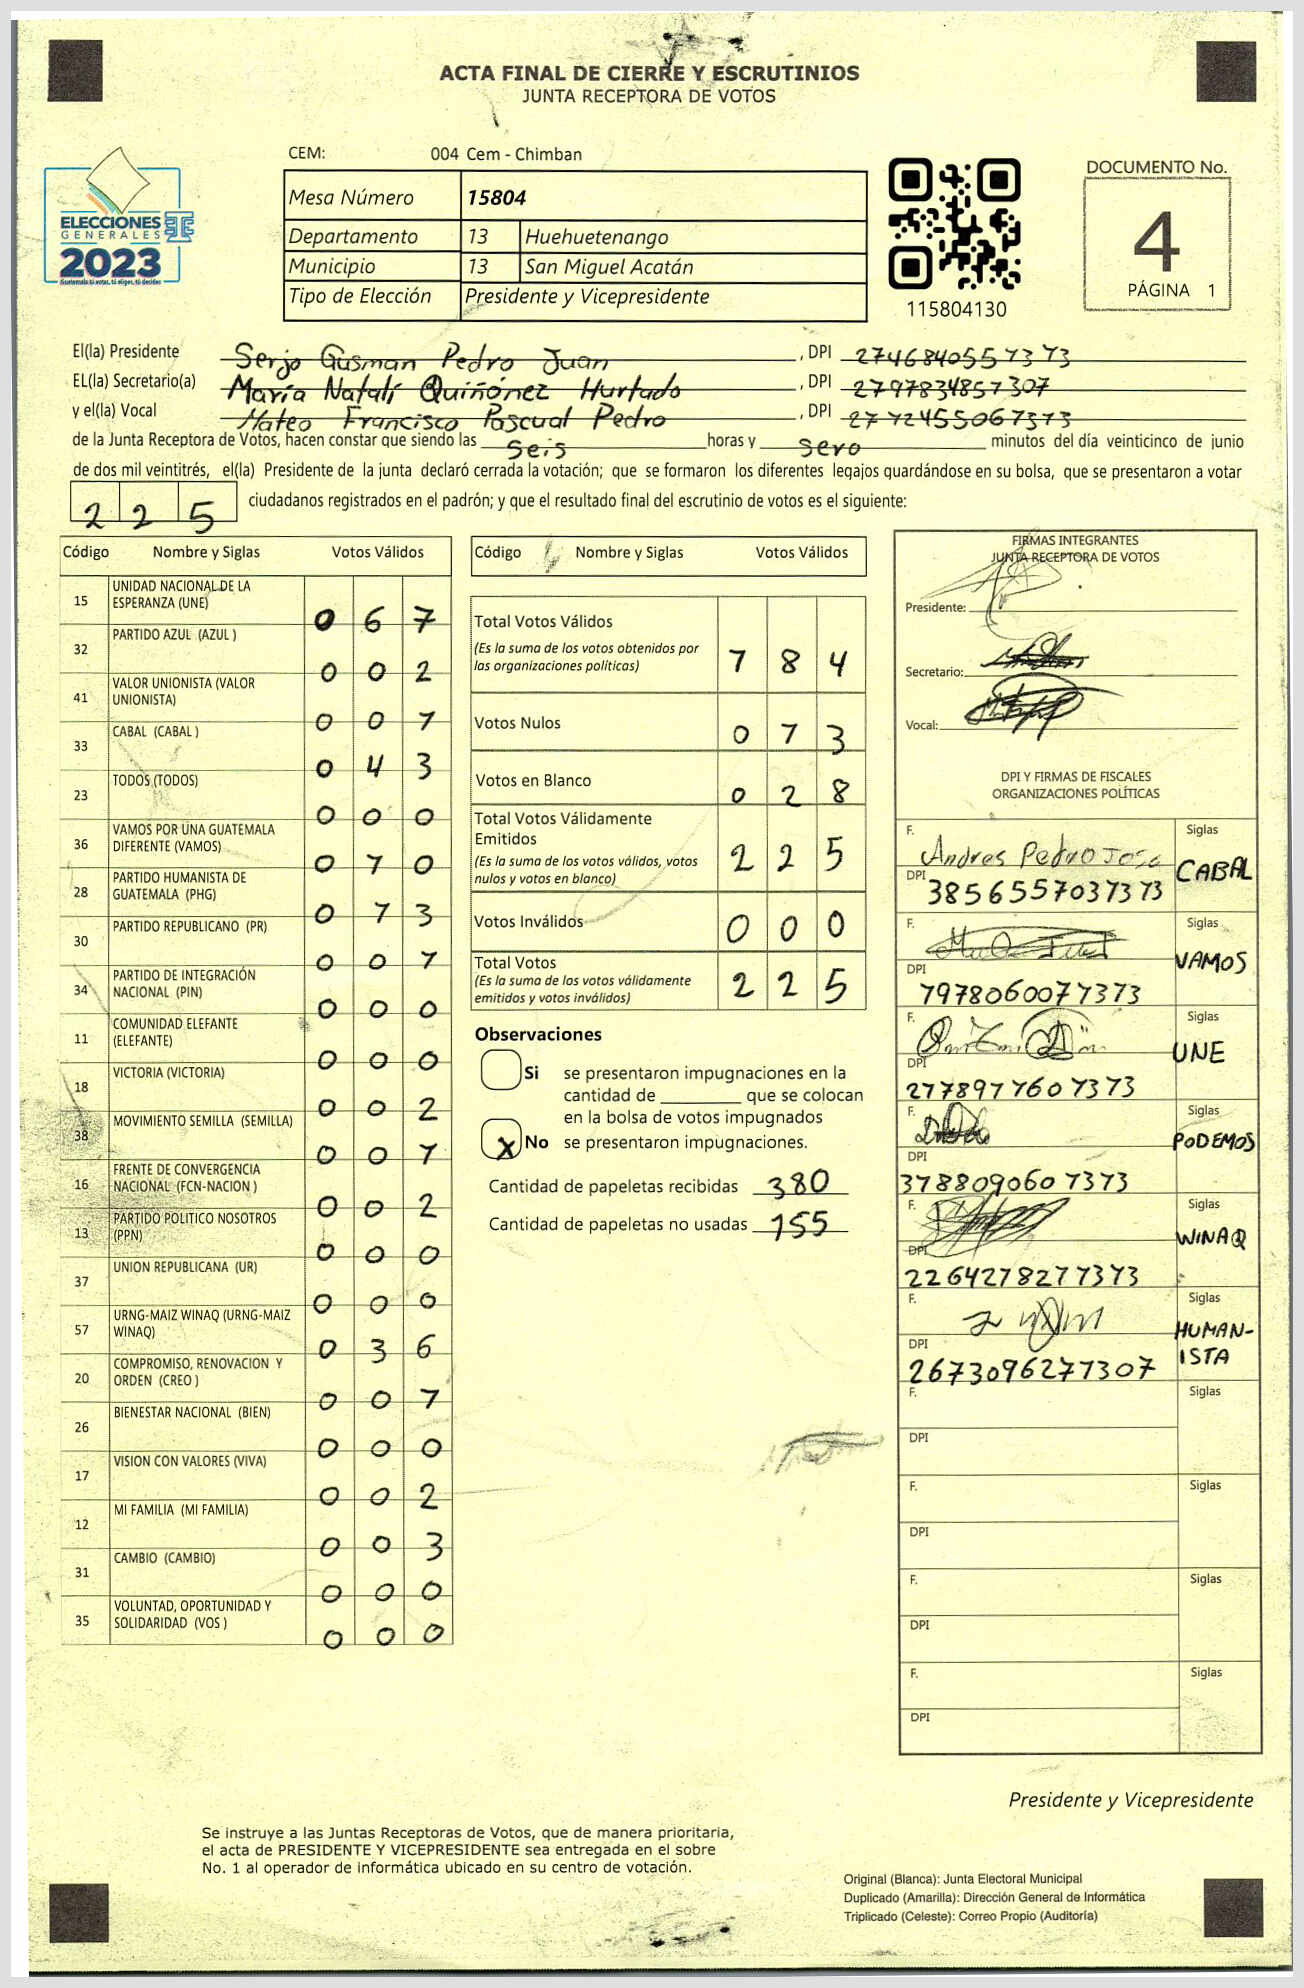 ACTA FINAL DE CIERRE Y ESCRUTINIOS
JUNTA RECEPTORA DE VOTOS
CEM: 004 Cem - Chimban
ELECCIONES
GENERALES
2023
Guatemala tú votas, tú eliges, tú decides
Mesa Número 15804
Departamento 13 Huehuetenango
Municipio 13 San Miguel Acatán
Tipo de Elección Presidente y Vicepresidente
115804130
DOCUMENTO No.
4
PÁGINA 1
El(la) Presidente Serjo Gusman Pedro Juan , DPI 2746840551313
EL(la) Secretario(a) María Natalí Quiñónez Hurtado , DPI 2797834851307
y el(la) Vocal Mateo Francisco Pascual Pedro , DPI 2772455061313
de la Junta Receptora de Votos, hacen constar que siendo las seis horas y sero minutos del día veinticinco de junio
de dos mil veintitrés, el(la) Presidente de la junta declaró cerrada la votación; que se formaron los diferentes legajos quardándose en su bolsa, que se presentaron a votar
2 2 5 ciudadanos registrados en el padrón; y que el resultado final del escrutinio de votos es el siguiente:
Código Nombre y Siglas Votos Válidos
15 UNIDAD NACIONAL DE LA ESPERANZA (UNE) 0 6 7
32 PARTIDO AZUL (AZUL ) 0 0 2
41 VALOR UNIONISTA (VALOR UNIONISTA) 0 0 1
33 CABAL (CABAL ) 0 4 3
23 TODOS (TODOS) 0 0 0
36 VAMOS POR UNA GUATEMALA DIFERENTE (VAMOS) 0 1 0
28 PARTIDO HUMANISTA DE GUATEMALA (PHG) 0 1 3
30 PARTIDO REPUBLICANO (PR) 0 0 1
34 PARTIDO DE INTEGRACIÓN NACIONAL (PIN) 0 0 0
11 COMUNIDAD ELEFANTE (ELEFANTE) 0 0 0
18 VICTORIA (VICTORIA) 0 0 2
38 MOVIMIENTO SEMILLA (SEMILLA) 0 0 1
16 FRENTE DE CONVERGENCIA NACIONAL (FCN-NACION ) 0 0 2
13 PARTIDO POLITICO NOSOTROS (PPN) 0 0 0
37 UNION REPUBLICANA (UR) 0 0 0
57 URNG-MAIZ WINAQ (URNG-MAIZ WINAQ) 0 3 6
20 COMPROMISO, RENOVACION Y ORDEN (CREO ) 0 0 1
26 BIENESTAR NACIONAL (BIEN) 0 0 0
17 VISION CON VALORES (VIVA) 0 0 2
12 MI FAMILIA (MI FAMILIA) 0 0 3
31 CAMBIO (CAMBIO) 0 0 0
35 VOLUNTAD, OPORTUNIDAD Y SOLIDARIDAD (VOS ) 0 0 0
Código Nombre y Siglas Votos Válidos
Total Votos Válidos
(Es la suma de los votos obtenidos por
las organizaciones políticas) 1 8 4
Votos Nulos 0 1 3
Votos en Blanco 0 2 8
Total Votos Válidamente
Emitidos
(Es la suma de los votos válidos, votos
nulos y votos en blanco) 2 2 5
Votos Inválidos 0 0 0
Total Votos
(Es la suma de los votos válidamente
emitidos y votos inválidos) 2 2 5
Observaciones
Si se presentaron impugnaciones en la
cantidad de ________ que se colocan
en la bolsa de votos impugnados
X No se presentaron impugnaciones.
Cantidad de papeletas recibidas 380
Cantidad de papeletas no usadas 155
FIRMAS INTEGRANTES
JUNTA RECEPTORA DE VOTOS
Presidente:
Secretario:
Vocal:
DPI Y FIRMAS DE FISCALES
ORGANIZACIONES POLÍTICAS
F. Andres Pedro Jose Siglas CABAL
DPI 3856557031313
F. Siglas VAMOS
DPI 1978060011313
F. Siglas UNE
DPI 2778977601313
F. Siglas PODEMOS
DPI 3188090601313
F. Siglas WINAQ
DPI 2264218271313
F. Siglas HUMAN-
ISTA
DPI 2673096271307
F. Siglas
DPI
F. Siglas
DPI
F. Siglas
DPI
F. Siglas
DPI
Presidente y Vicepresidente
Se instruye a las Juntas Receptoras de Votos, que de manera prioritaria,
el acta de PRESIDENTE Y VICEPRESIDENTE sea entregada en el sobre
No. 1 al operador de informática ubicado en su centro de votación.
Original (Blanca): Junta Electoral Municipal
Duplicado (Amarilla): Dirección General de Informática
Triplicado (Celeste): Correo Propio (Auditoría)